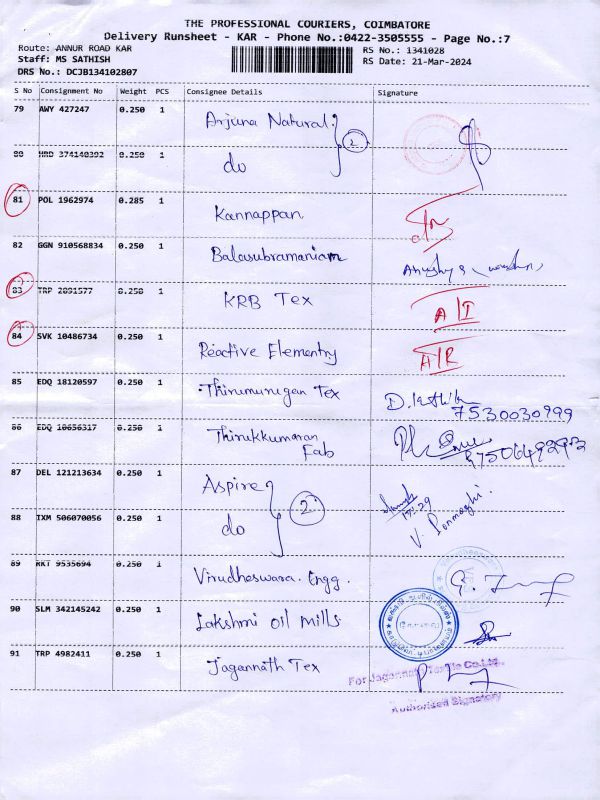 THE PROFESSIONAL COURIERS, COIMBATORE
Delivery Runsheet - KAR - Phone No.:0422-3505555 - Page No.:7
Route: ANNUR ROAD KAR
RS No.: 1341028
Staff: MS SATHISH
RS Date: 21-Mar-2024
DRS No.: DCJB134102807
S No Consignment No Weight PCS Consignee Details Signature
79 AWY 427247 0.250 1 Arjuna Natural 2
80 HRD 374140392 0.250 1 do
81 POL 1962974 0.285 1 Kannappan
82 GGN 910568834 0.250 1 Balasubramaniam
83 TRP 2851577 0.250 1 KRB Tex A/I
84 SVK 10486734 0.250 1 Reactive Elementry A/R
85 EDQ 18120597 0.250 1 Thirumurugan Tex 7530030999
86 EDQ 10656317 0.250 1 Thirukkumaran Fab
87 DEL 121213634 0.250 1 Aspire 2
88 IXM 506070056 0.250 1 do V. Ponmozhi
89 RKT 9535694 0.250 1 Virudheswara Engg.
90 SLM 342145242 0.250 1 Lakshmi Oil Mills
91 TRP 4982411 0.250 1 Jagannath Tex
For Jagannath Textile Co.Ltd.,
Authorised Signatory